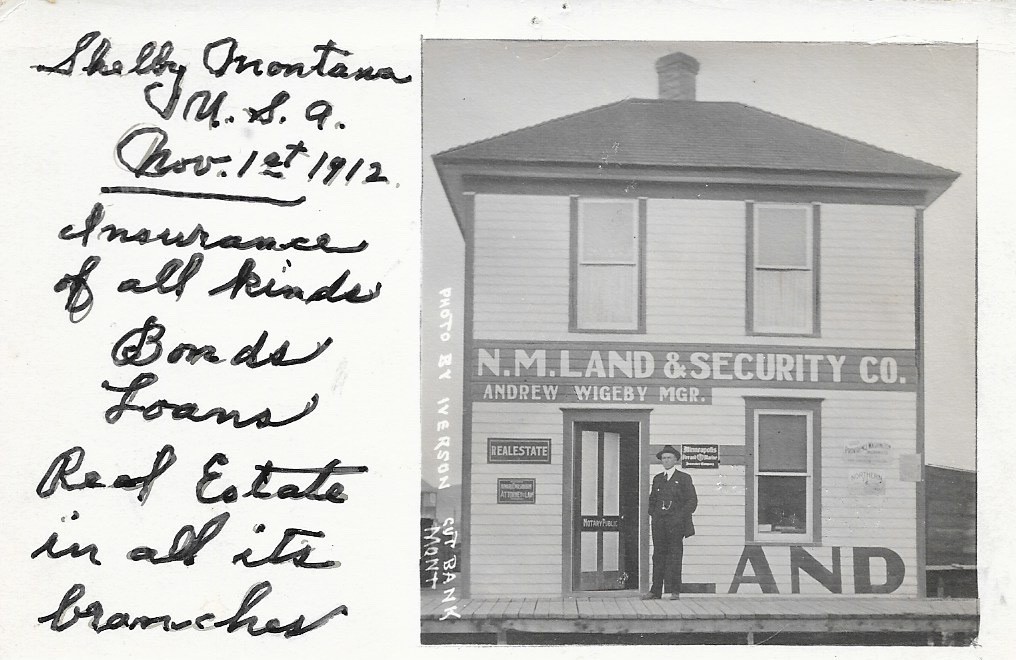 Shelby Montana
U. S. A.
Nov. 1st 1912.
Insurance
of all kinds
Bonds
Loans
Real Estate
in all its
branches
PHOTO BY IVERSON CUT BANK
MONT
N.M. LAND & SECURITY CO.
ANDREW WIGEBY MGR.
REAL ESTATE
ATTORNEY AT LAW
NOTARY PUBLIC
Minneapolis
Fire and Marine
LAND
NORTHERN